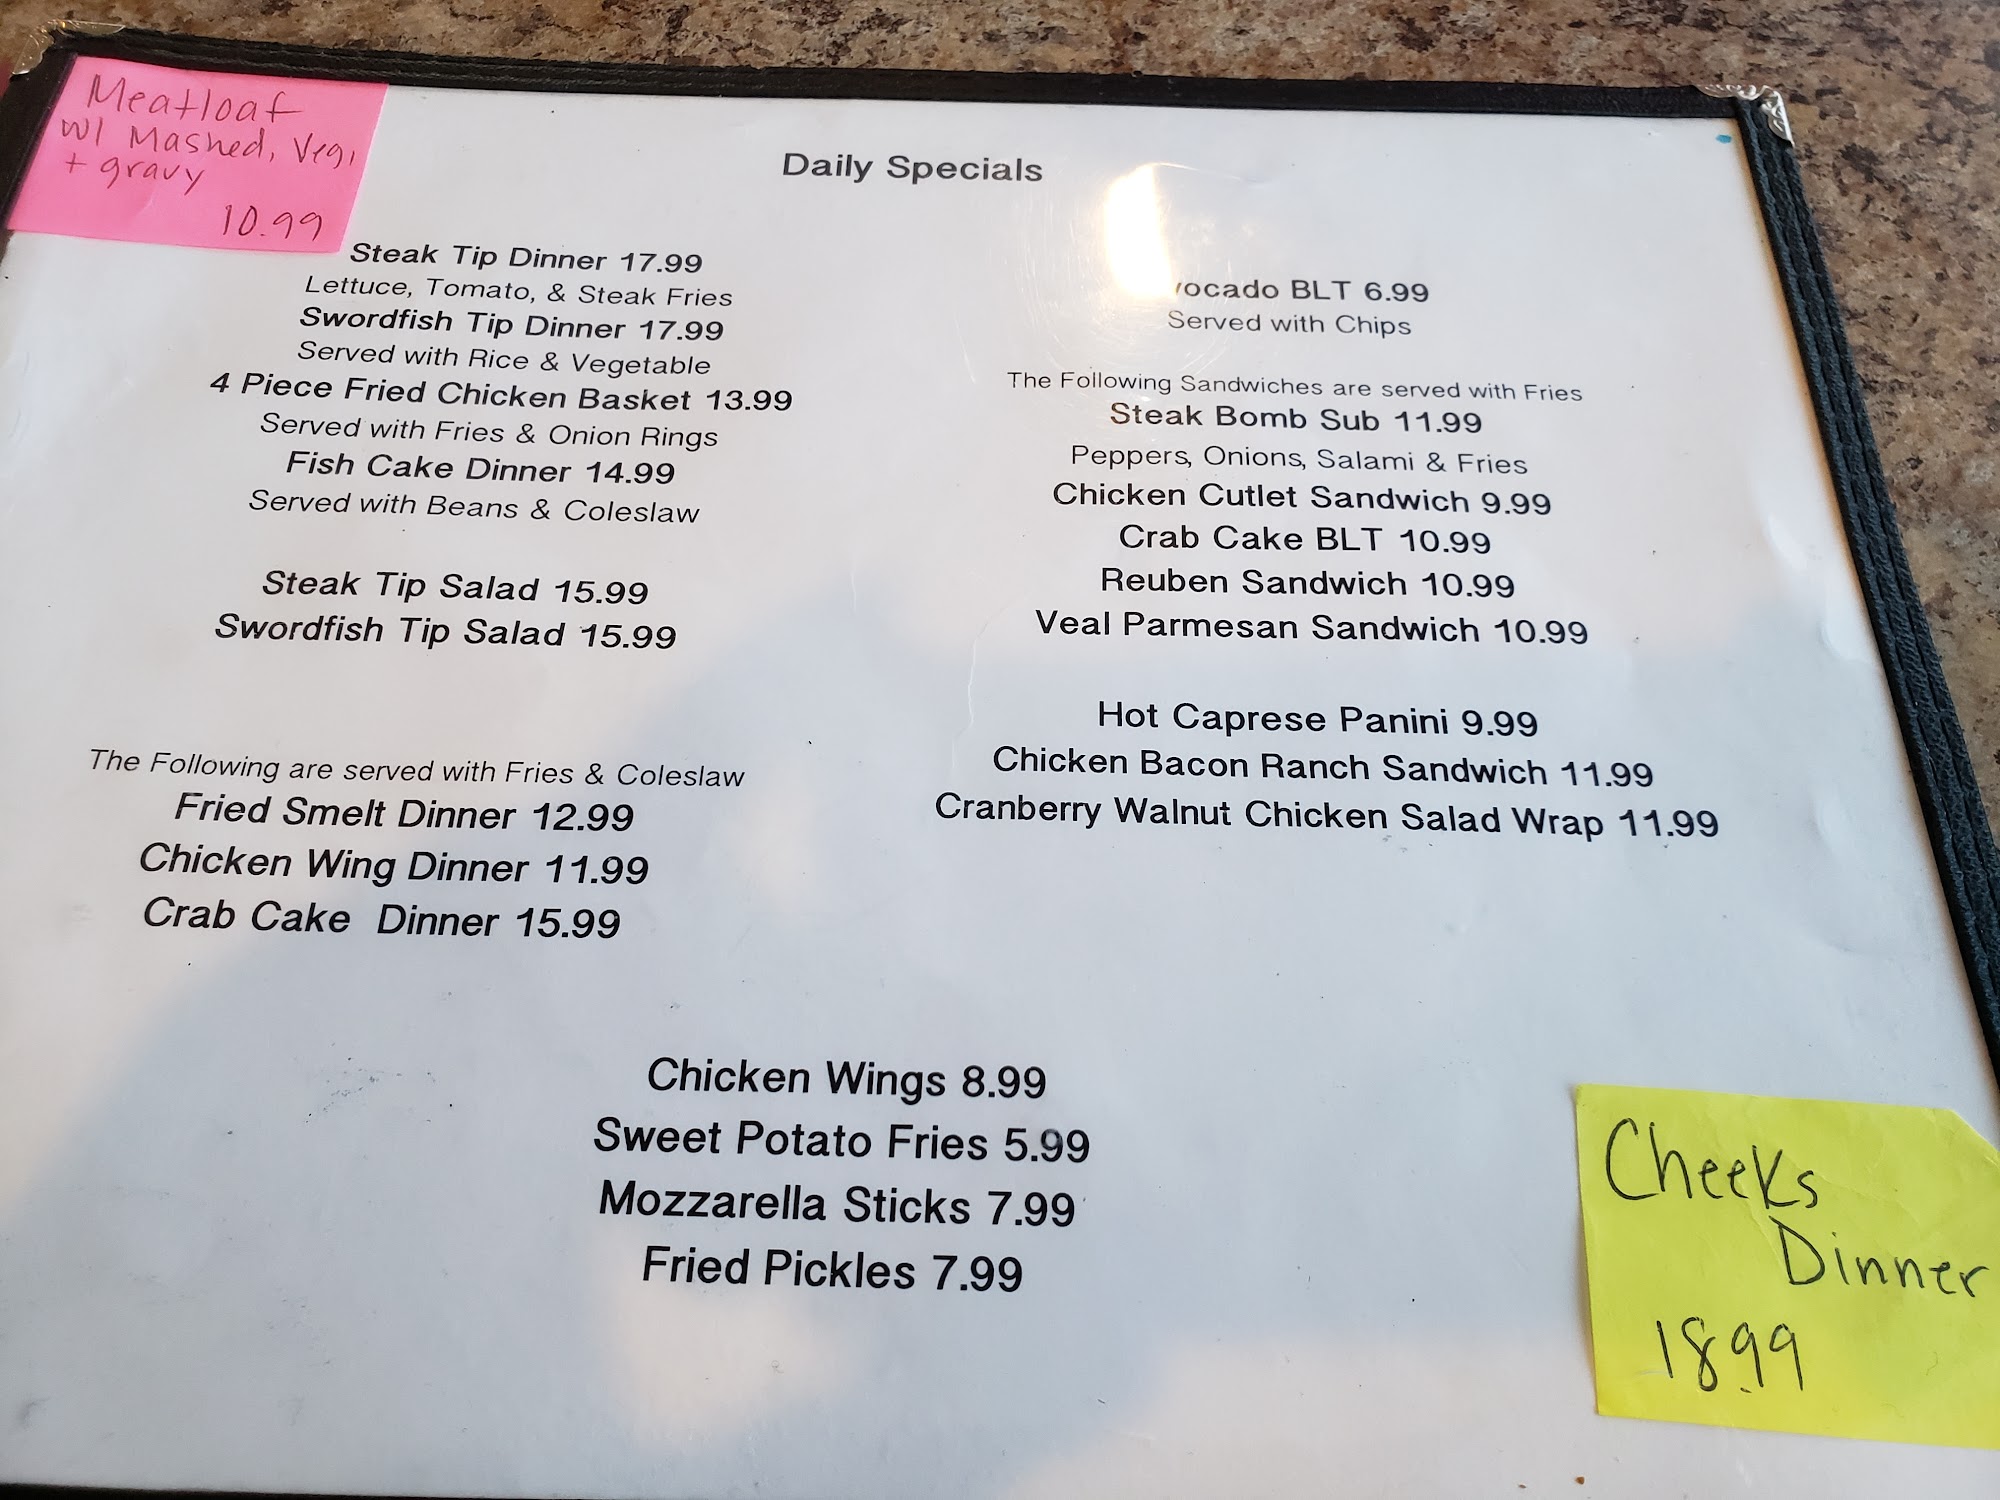 Meatloaf
w/ Mashed, Veg,
+ gravy
10.99
Daily Specials
Steak Tip Dinner 17.99
Lettuce, Tomato, & Steak Fries
Swordfish Tip Dinner 17.99
Served with Rice & Vegetable
4 Piece Fried Chicken Basket 13.99
Served with Fries & Onion Rings
Fish Cake Dinner 14.99
Served with Beans & Coleslaw
Steak Tip Salad 15.99
Swordfish Tip Salad 15.99
The Following are served with Fries & Coleslaw
Fried Smelt Dinner 12.99
Chicken Wing Dinner 11.99
Crab Cake Dinner 15.99
BLT 6.99
Served with Chips
The Following Sandwiches are served with Fries
Steak Bomb Sub 11.99
Peppers, Onions, Salami & Fries
Chicken Cutlet Sandwich 9.99
Crab Cake BLT 10.99
Reuben Sandwich 10.99
Veal Parmesan Sandwich 10.99
Hot Caprese Panini 9.99
Chicken Bacon Ranch Sandwich 11.99
Cranberry Walnut Chicken Salad Wrap 11.99
Chicken Wings 8.99
Sweet Potato Fries 5.99
Mozzarella Sticks 7.99
Fried Pickles 7.99
Cheeks
Dinner
18.99